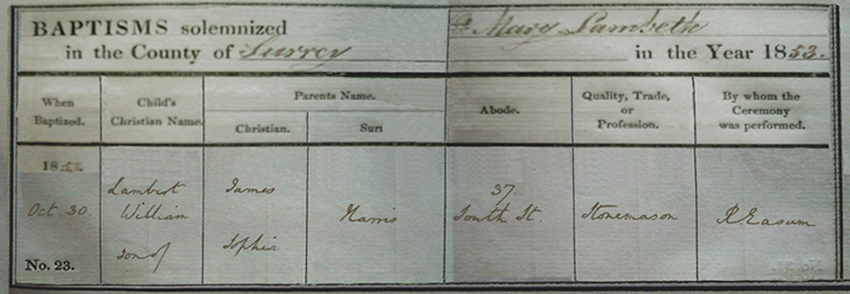 BAPTISMS solemnized St. Mary Lambeth
in the County of Surrey in the Year 1853.
When Baptized.
Child's Christian Name.
Parents Name.
Christian.
Sur
Abode.
Quality, Trade, or Profession.
By whom the Ceremony was performed.
1853.
Oct. 30.
No. 23.
Lambert
William
son of
James
Sophia
Harris
37
South St.
Stonemason
R Easum